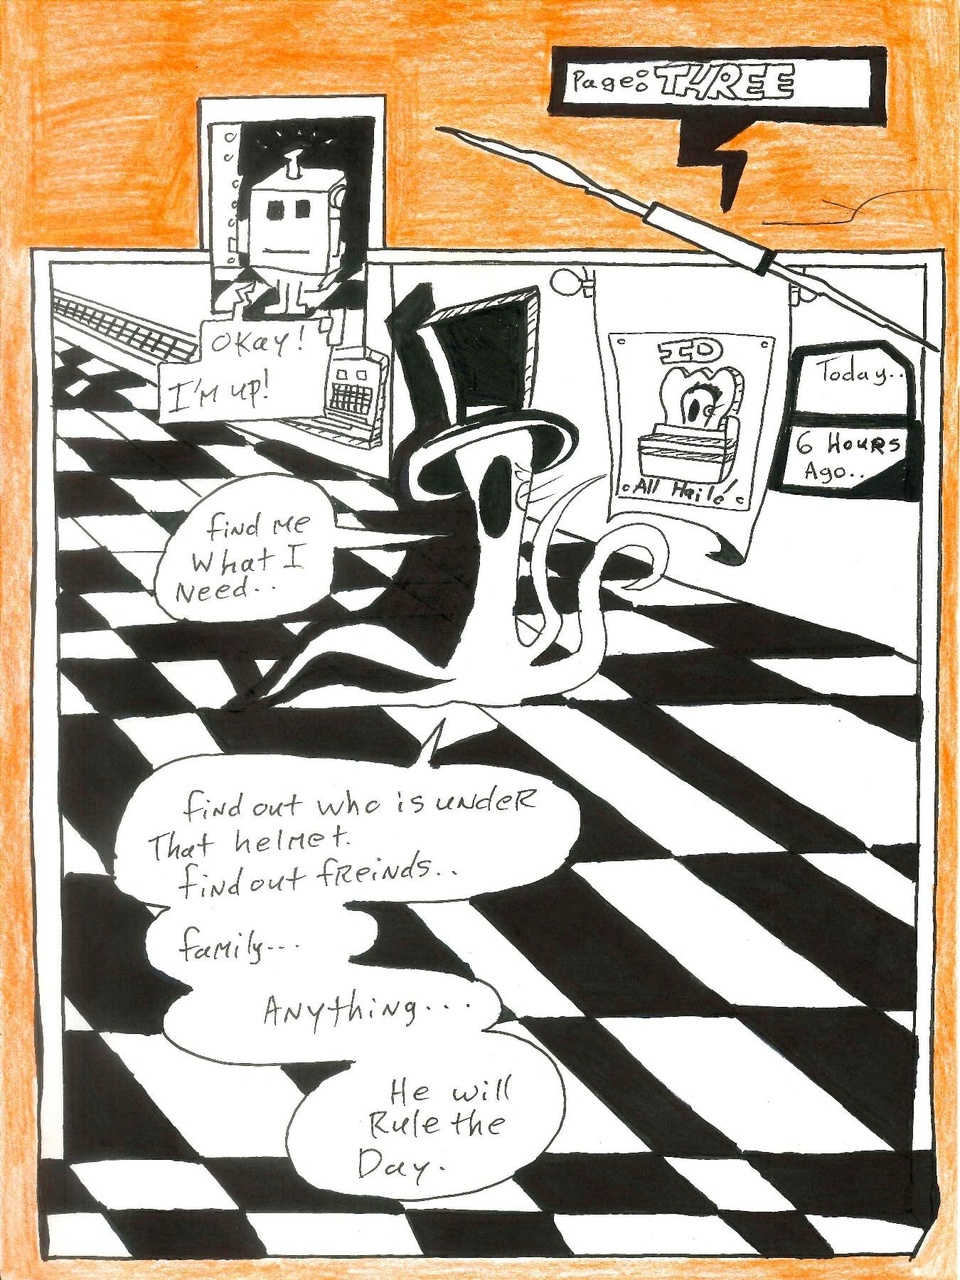 Page: THREE
OKay!
I'm up!
ID
All Hail!
Today..
6 Hours
Ago..
find me
What I
Need..
find out who is under
That helmet.
find out freinds..
family...
Anything...
He will
Rule the
Day.